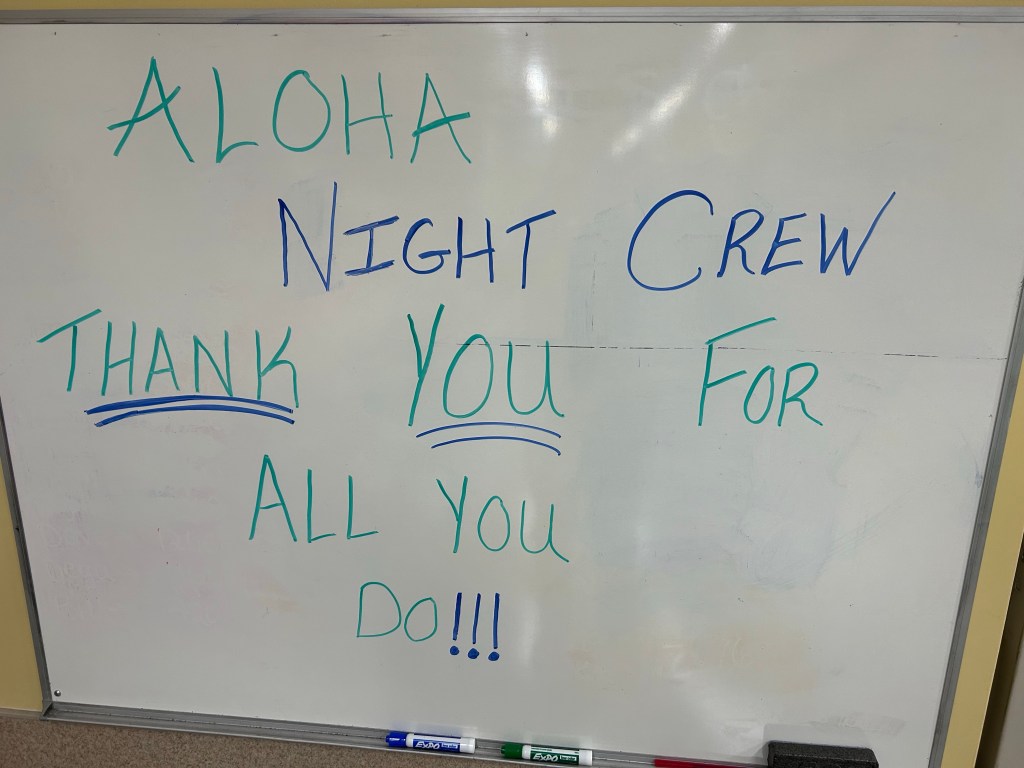 ALOHA
NIGHT CREW
THANK YOU FOR
ALL YOU
DO!!!
EXPO EXPO